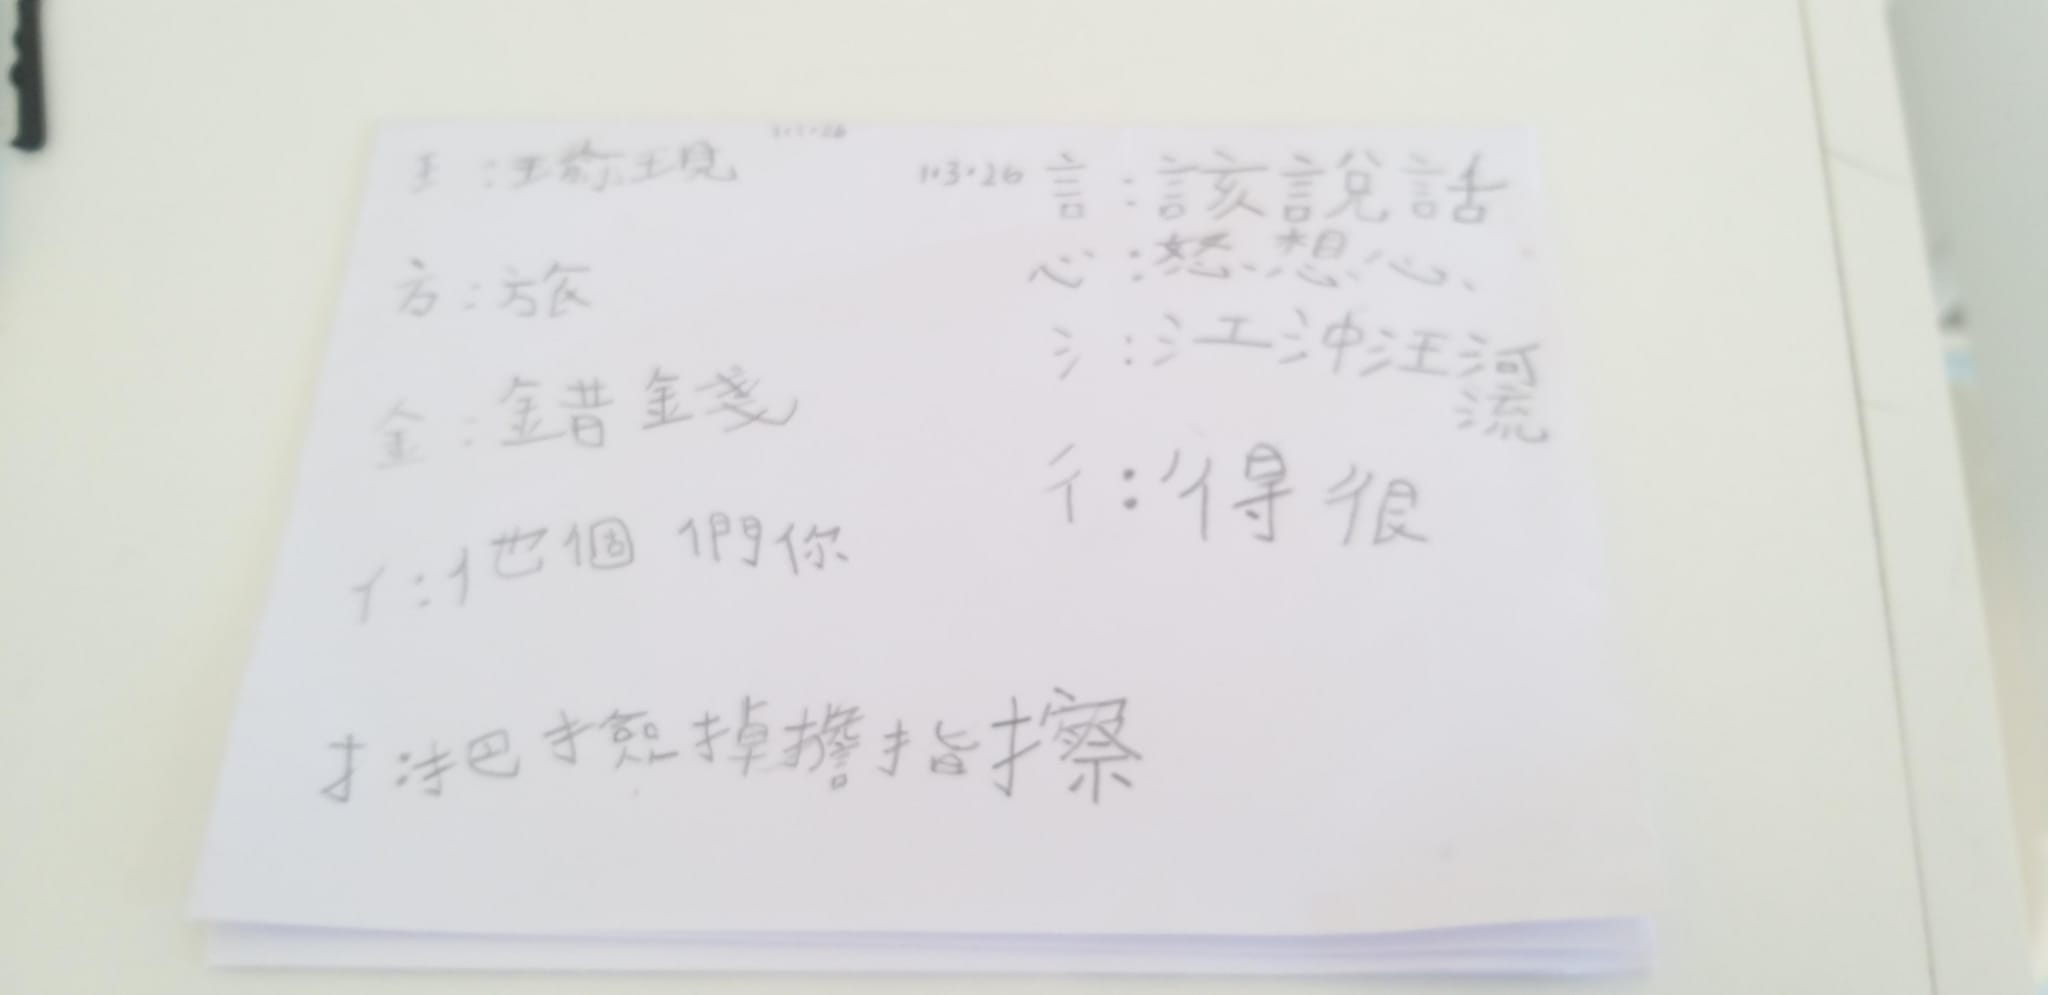 王:瑜現
方:旅
金:錯錢
亻:他個們你
扌:把撿掉擔指擦
1.3.26
言:該説話
心:怒想心
氵:江沖汪河
流
彳:得很